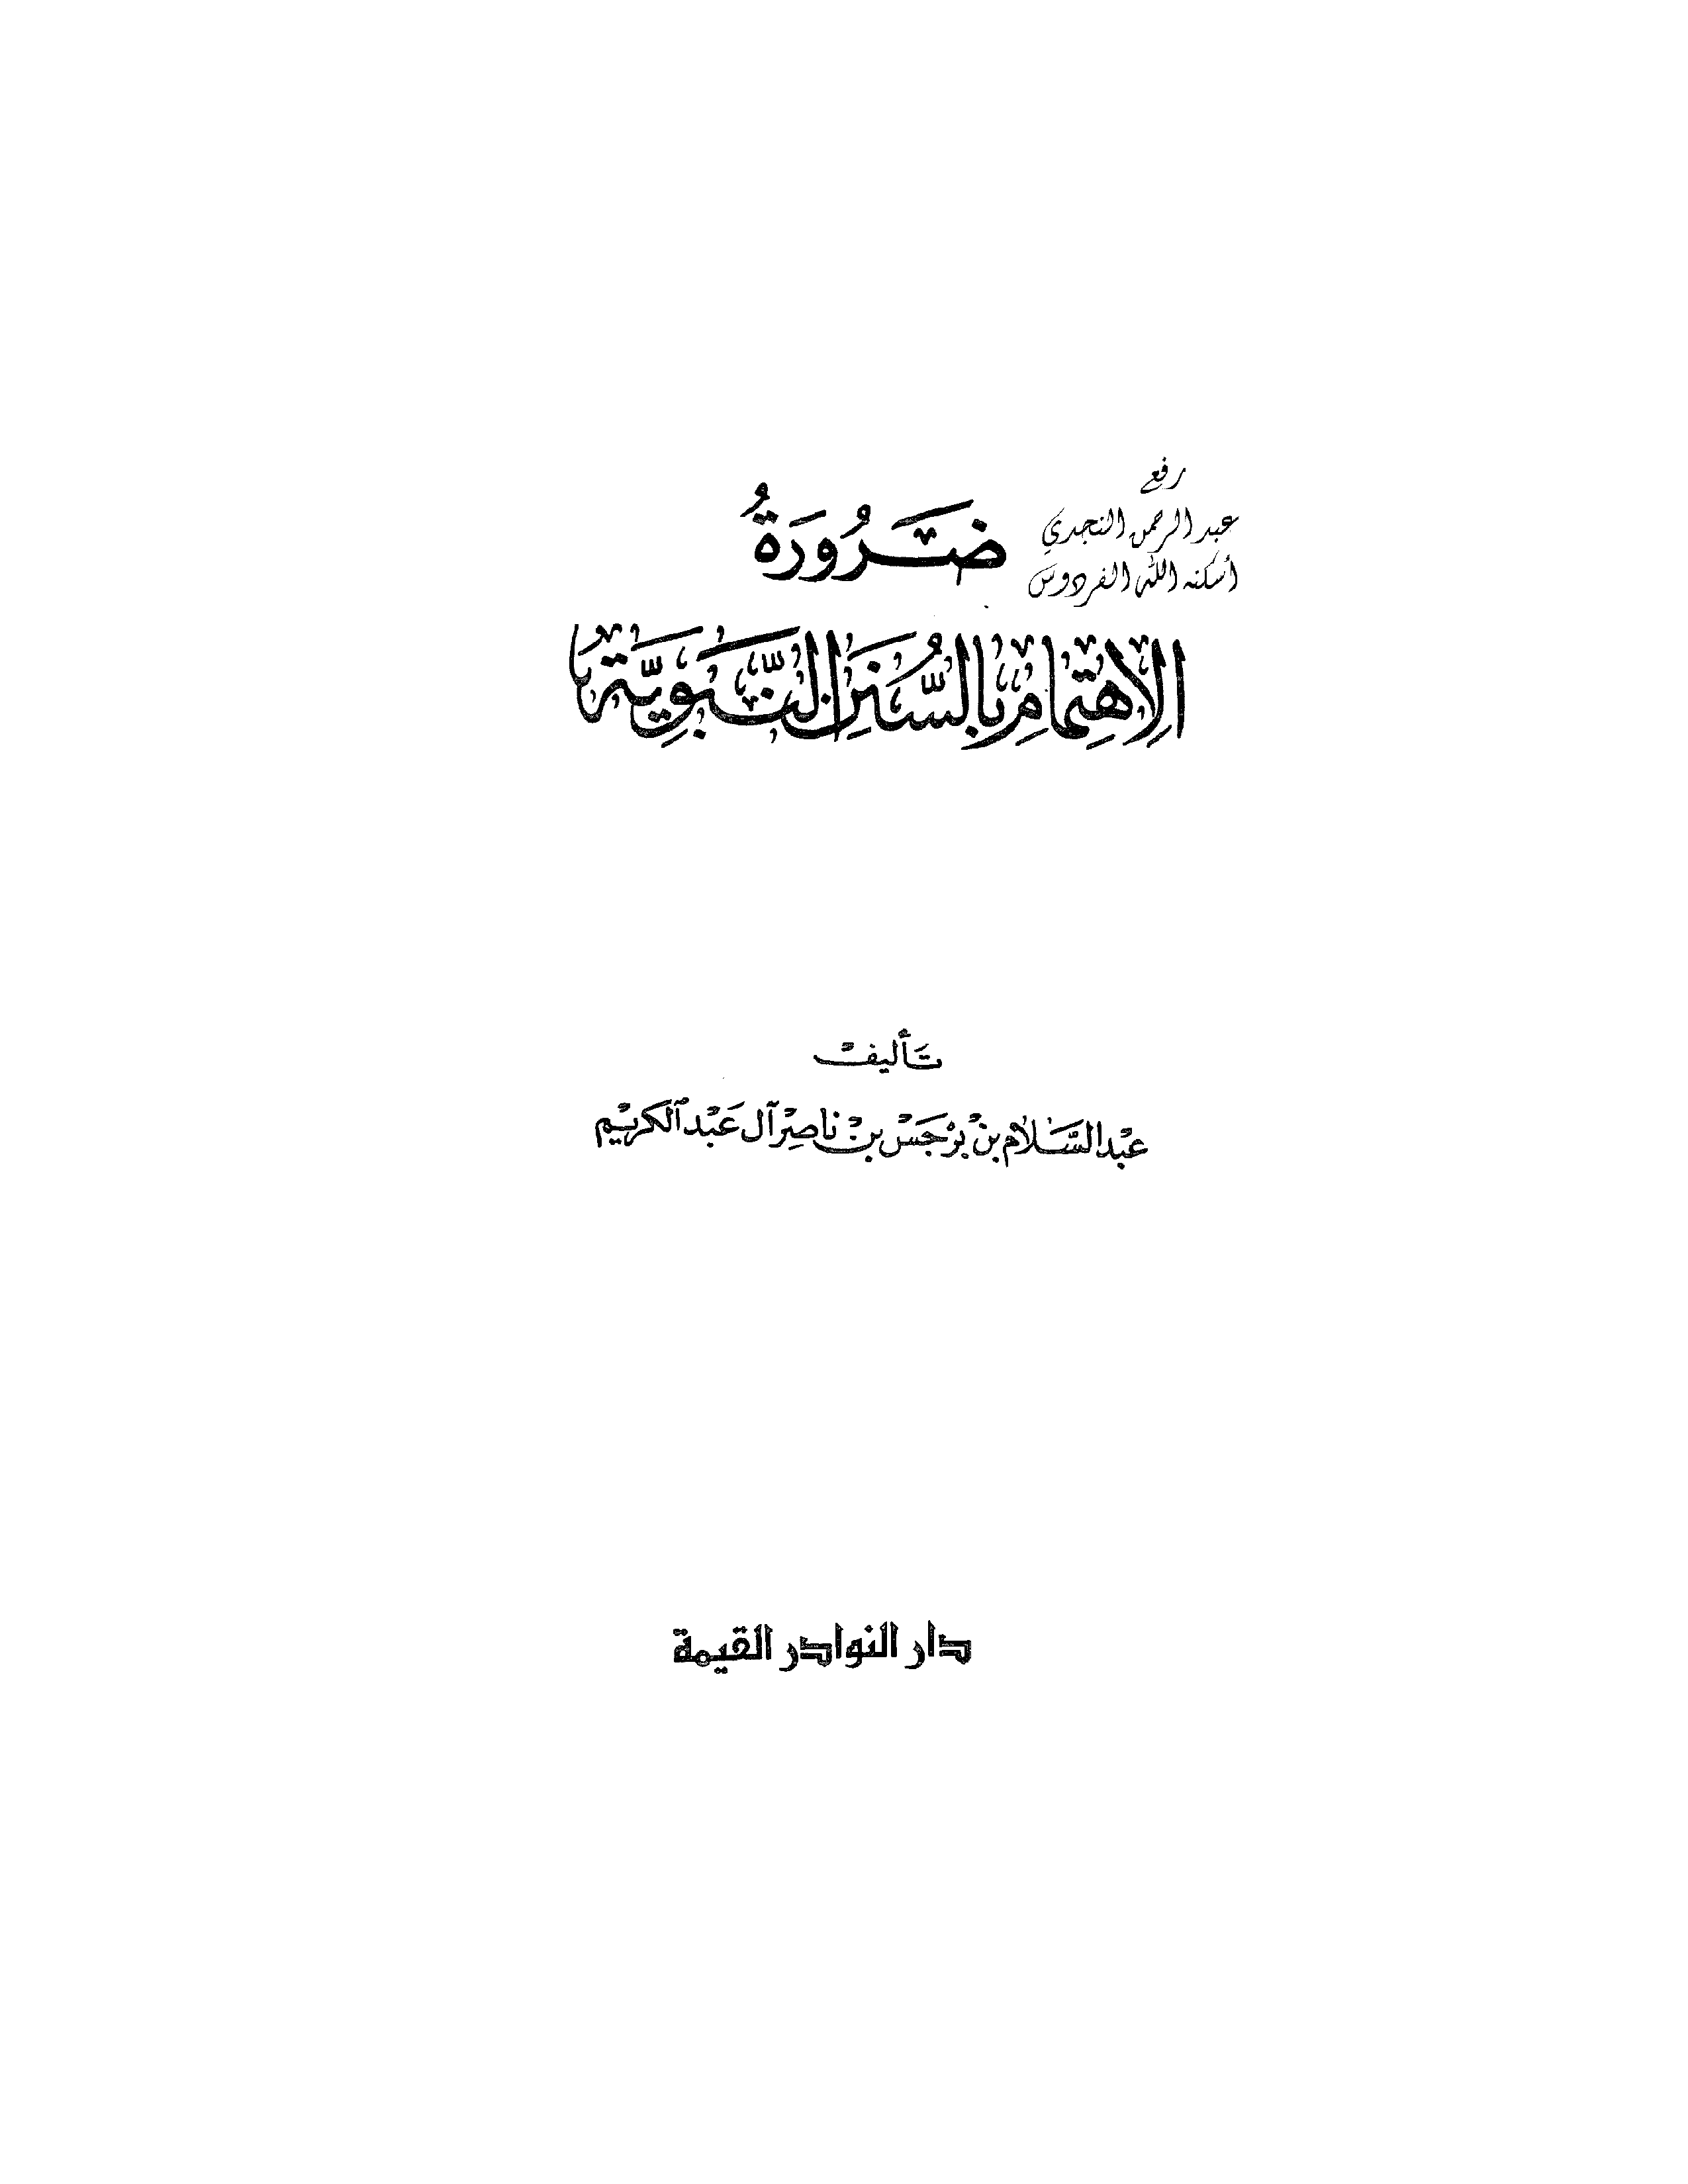 رفع
عبد الرحمن النجدي
أسكنه الله الفردوس
ضَرُورَةُ
الاِهْتِمَامِ بِالسُّنَنِ النَّبَوِيَّةِ
تَأليف
عَبْد السَّلَام بنْ بَرْجَسْ بنْ نَاصِرْ آل عَبْد الكَرِيْم
دار النوادر القيمة